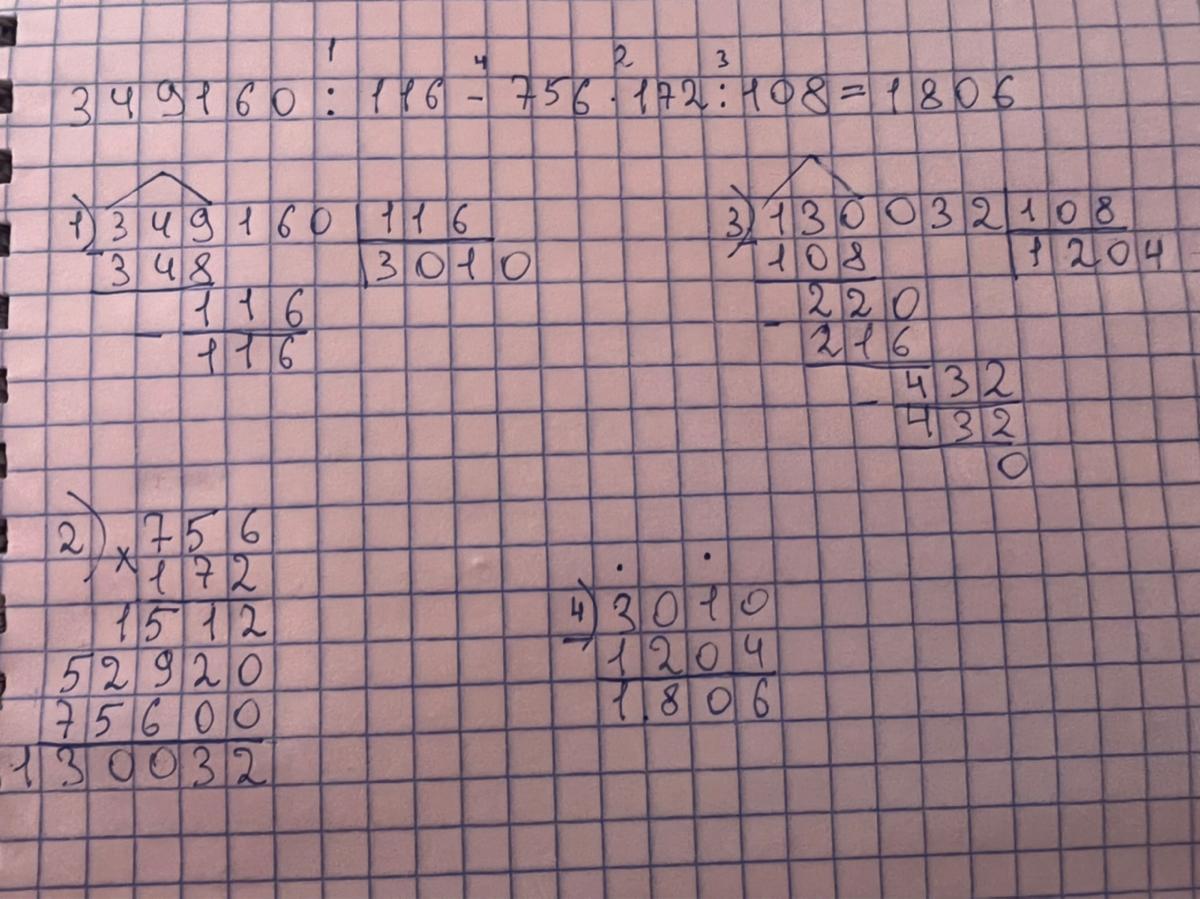 1 4 2 3
349160 : 116 - 756 · 172 : 108 = 1806
1) 349160 | 116
348 | 3010
- 116
116
3) 130032 | 108
108 | 1204
- 220
216
- 432
432
0
2) × 756
172
1512
52920
75600
130032
4) 3010
- 1204
1806